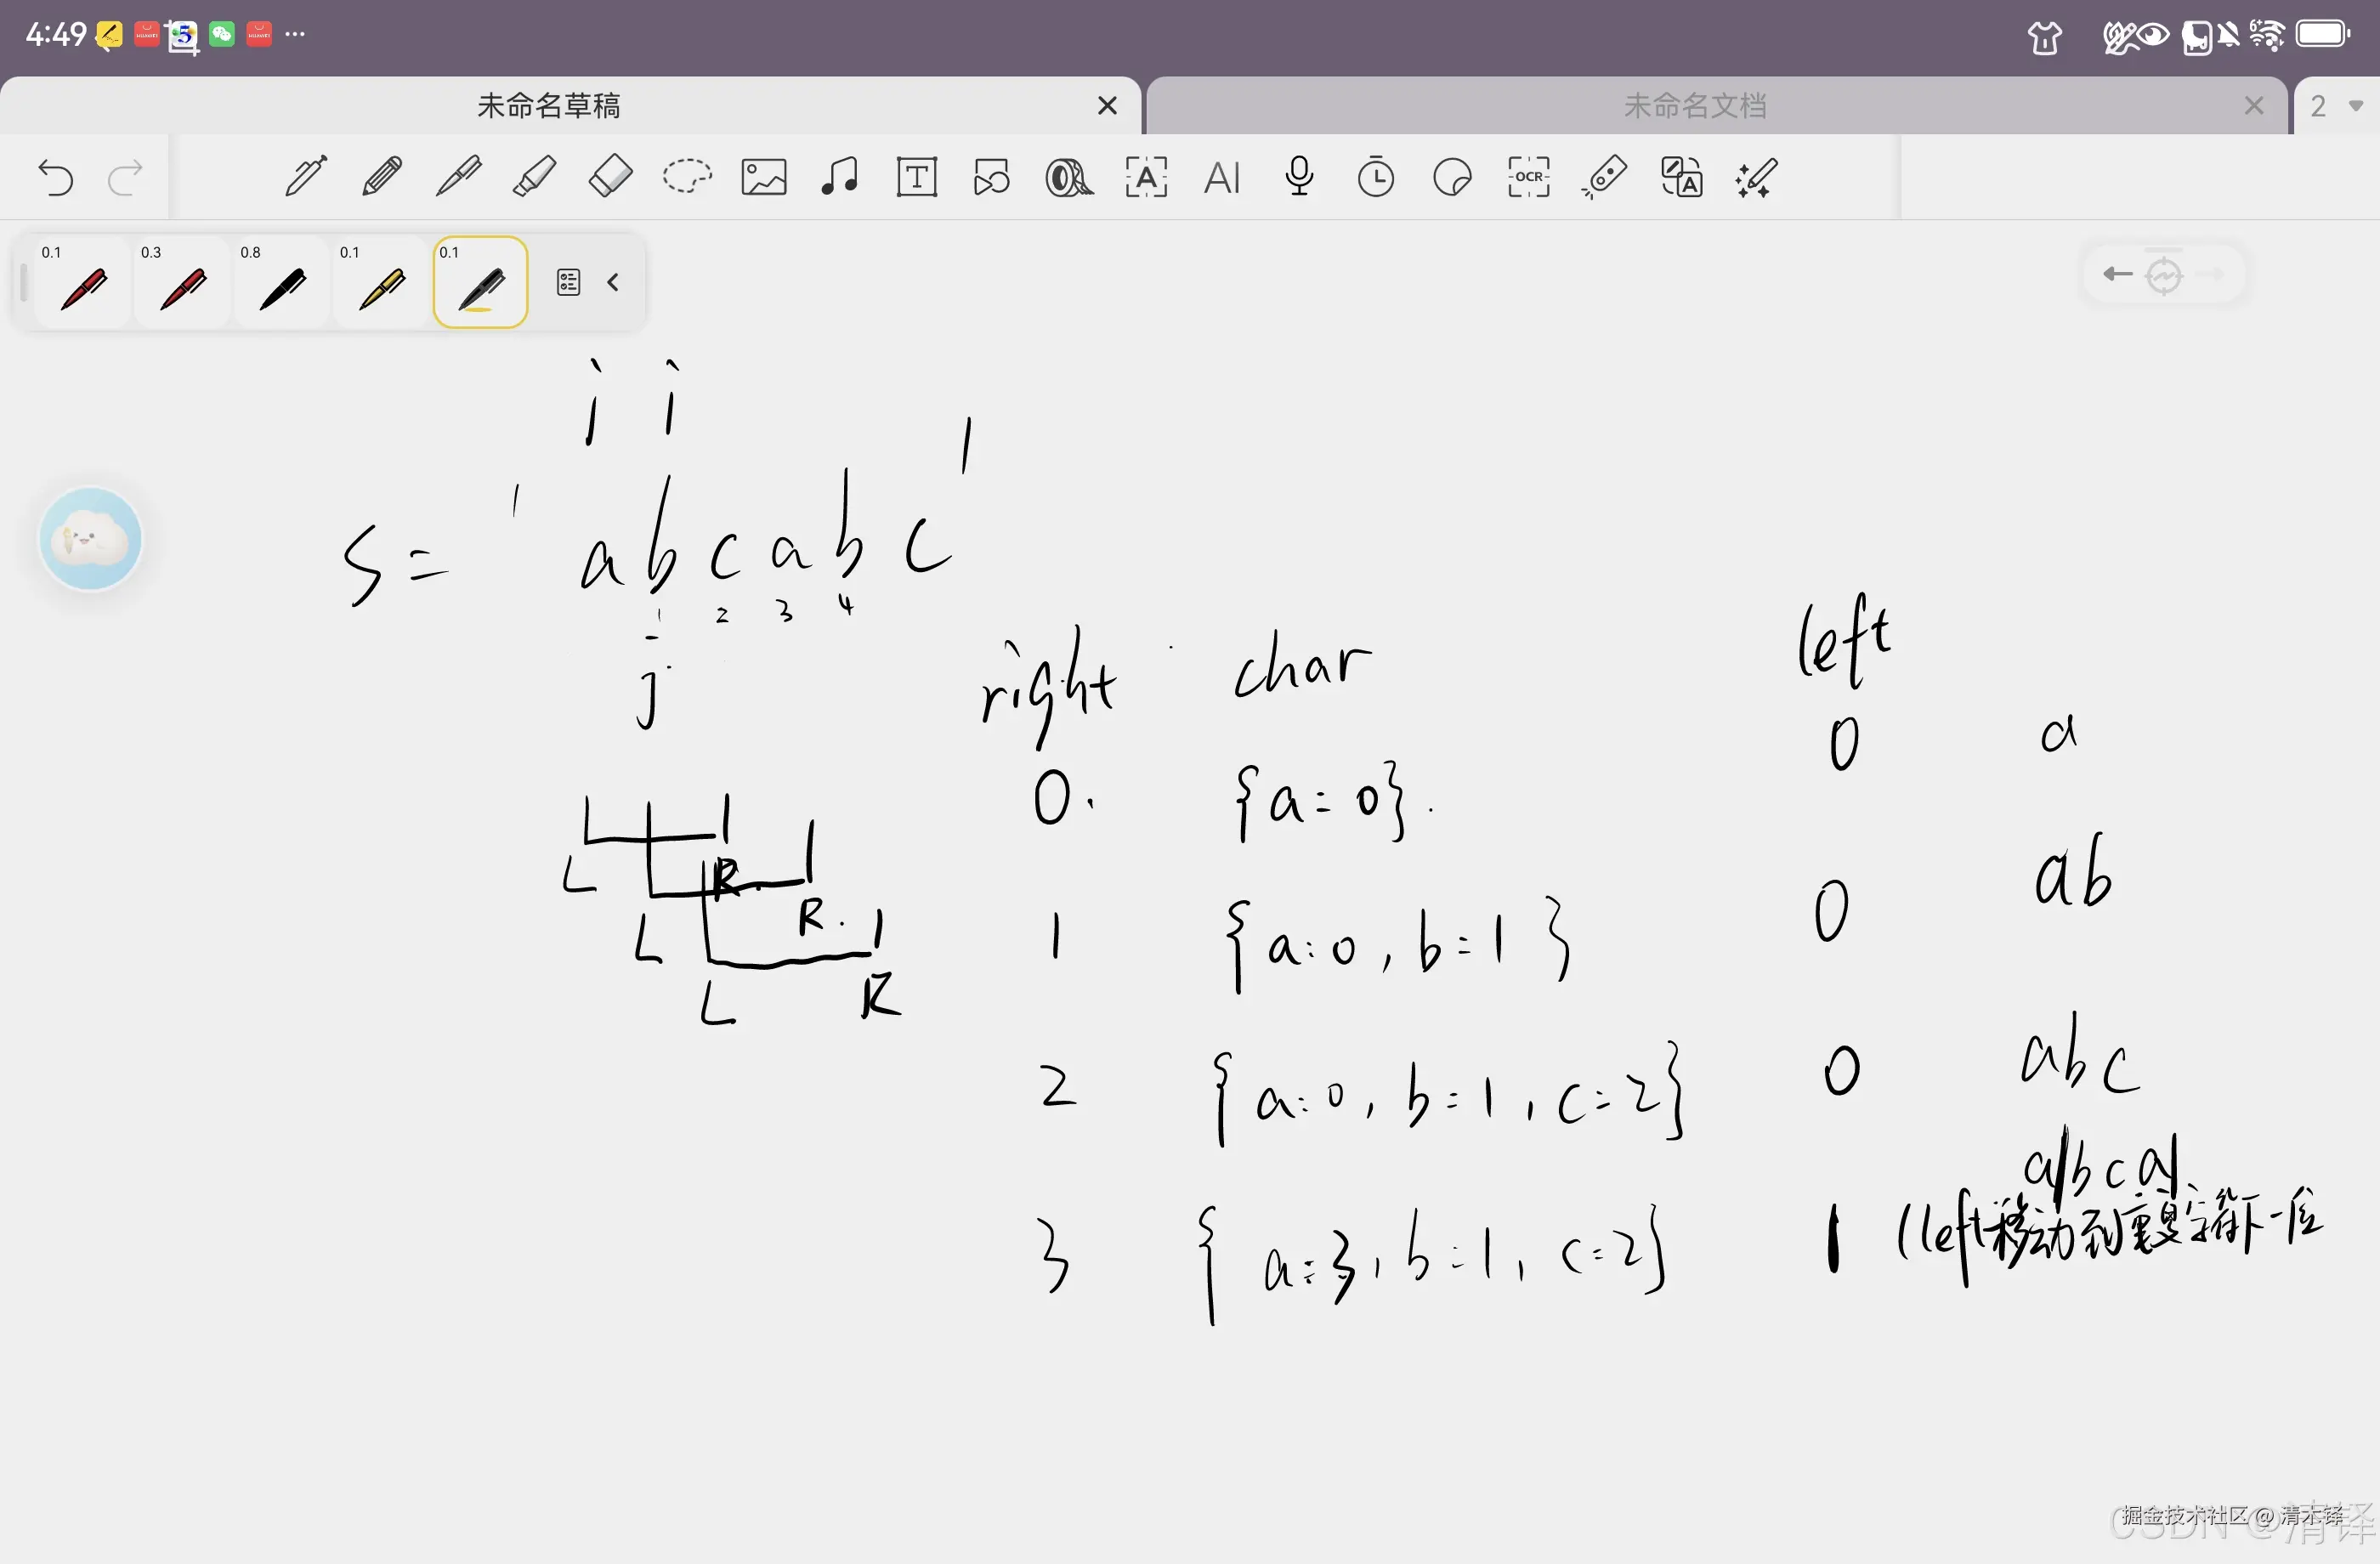 4:49
未命名草稿
未命名文档
2
T A AI OCR A
0.1 0.3 0.8 0.1 0.1
i i
s = ' a b c a b c '
1 2 3 4
j
right char left
0. {a = 0}. 0 a
1 {a: 0, b = 1} 0 ab
2 {a: 0, b = 1, c = 2} 0 abc
a|bca|
3 {a = 3, b = 1, c = 2} 1 (left移动到重复字符下一位
L R
L R
L R
掘金技术社区 @ 清木铎
CSDN @清铎